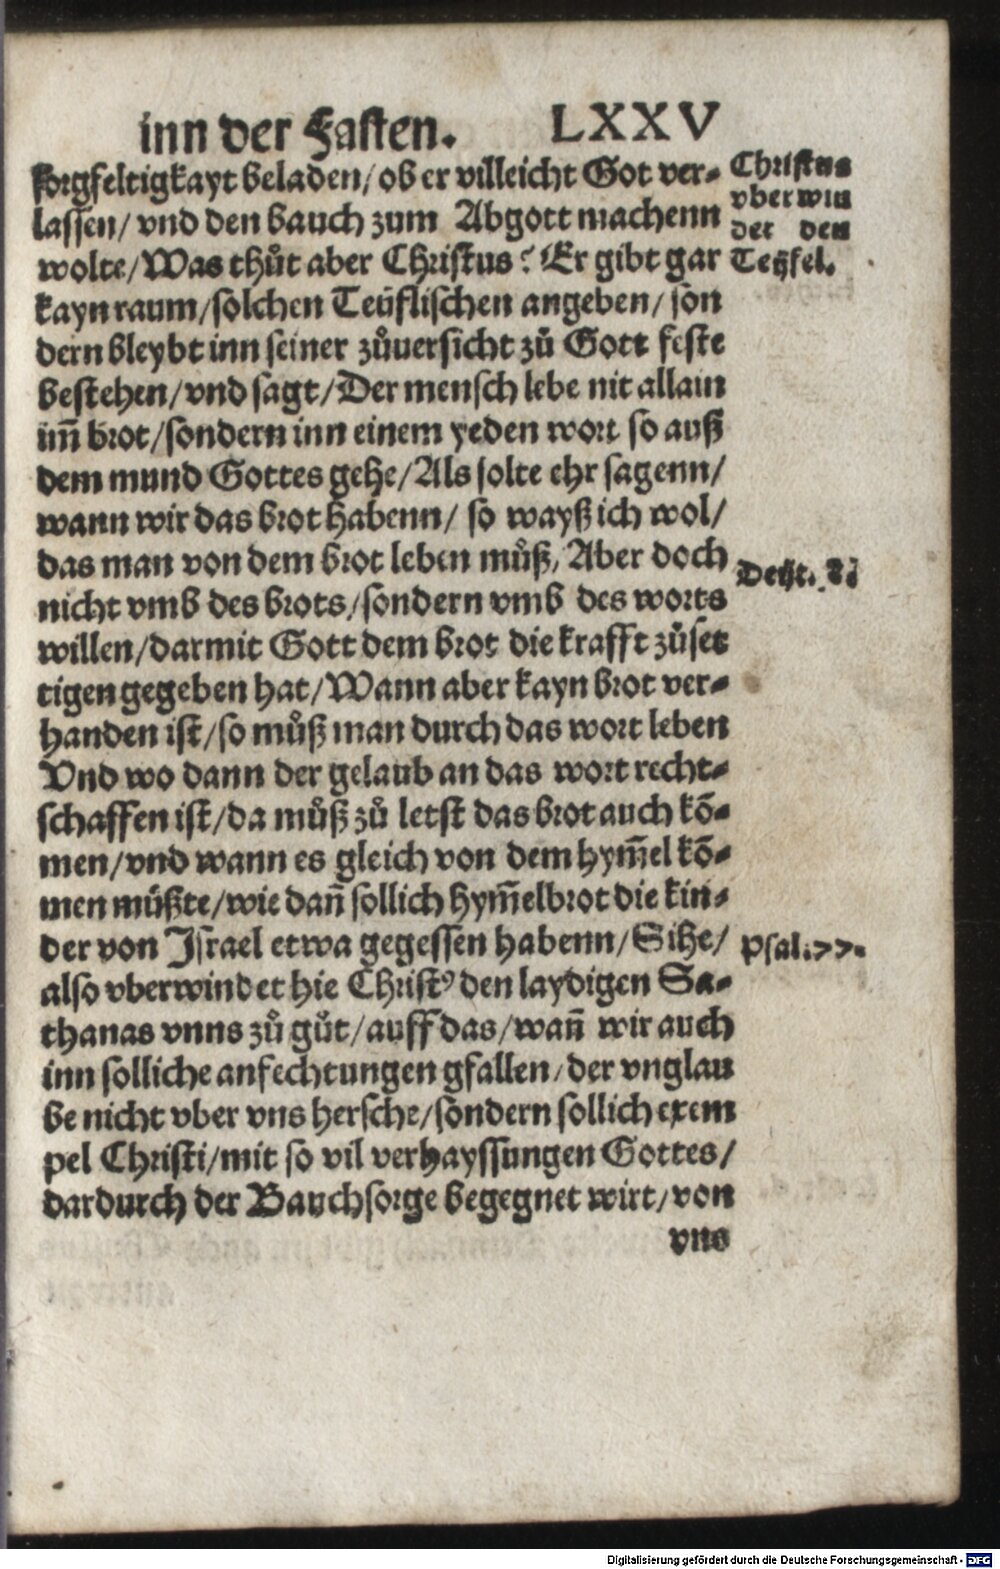 inn der Fasten. LXXV
sorgfeltigkayt beladen/ ob er villeicht Got ver-
lassen/ vnd den bauch zum Abgott machenn
wolte/ Was thůt aber Christus? Er gibt gar
kayn raum/ solchen Teüflischen angeben/ son
dern bleybt inn seiner zůuersicht zů Gott feste
bestehen/ vnd sagt/ Der mensch lebe nit allain
im̃ brot/ sondern inn einem yeden wort so auß
dem mund Gottes gehe/ Als solte ehr sagenn/
wann wir das brot habenn/ so wayß ich wol/
das man von dem brot leben můß/ Aber doch
nicht vmb des brots/ sondern vmb des worts
willen/ darmit Gott dem brot die krafft zůset
tigen gegeben hat/ Wann aber kayn brot ver-
handen ist/ so můß man durch das wort leben
Vnd wo dann der gelaub an das wort recht-
schaffen ist/ da můß zů letst das brot auch kõ-
men/ vnd wann es gleich von dem hym̃el kõ-
men müßte/ wie dañ sollich hym̃elbrot die kin-
der von Israel etwa gegessen habenn/ Sihe/
also vberwindet hie Christꝰ den laydigen Sa-
thanas vnns zů gůt/ auff das/ wañ wir auch
inn solliche anfechtungen gfallen/ der vnglau
be nicht vber vns hersche/ sondern sollich exem
pel Christi/ mit so vil verhayssungen Gottes/
dardurch der Bauchsorge begegnet wirt/ von
vns
Christus
vberwin
det den
Teÿfel.
Deut. 8.
Psal. 77.
Digitalisierung gefördert durch die Deutsche Forschungsgemeinschaft - DFG